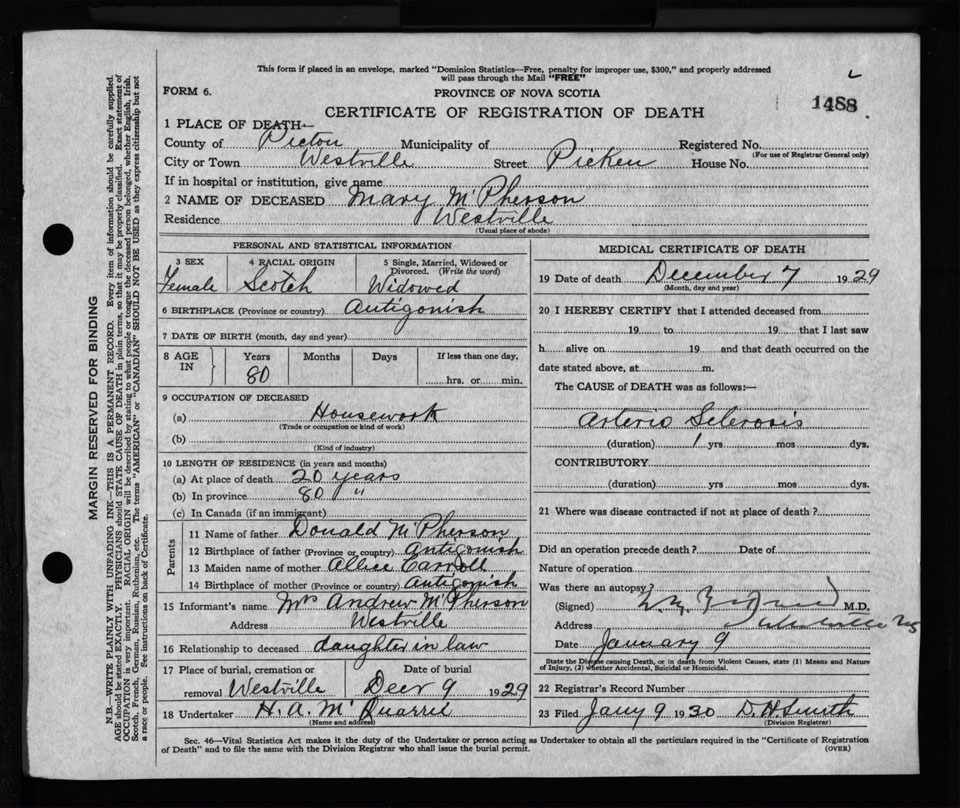 This form if placed in an envelope, marked "Dominion Statistics—Free, penalty for improper use, $300," and properly addressed
will pass through the Mail "FREE"
FORM 6.
PROVINCE OF NOVA SCOTIA
1488
CERTIFICATE OF REGISTRATION OF DEATH
1 PLACE OF DEATH—
County of Pictou Municipality of Registered No.
(For use of Registrar General only)
City or Town Westville Street Picken House No.
If in hospital or institution, give name
2 NAME OF DECEASED Mary McPherson
Residence Westville
(Usual place of abode)
PERSONAL AND STATISTICAL INFORMATION
3 SEX 4 RACIAL ORIGIN 5 Single, Married, Widowed or
Divorced. (Write the word)
Female Scotch Widowed
6 BIRTHPLACE (Province or country) Antigonish
7 DATE OF BIRTH (month, day and year)
8 AGE IN Years Months Days If less than one day,
80 hrs. or min.
9 OCCUPATION OF DECEASED
(a) Housework
(Trade or occupation or kind of work)
(b)
(Kind of industry)
10 LENGTH OF RESIDENCE (in years and months)
(a) At place of death 20 years
(b) In province 80 "
(c) In Canada (if an immigrant)
Parents
11 Name of father Donald McPherson
12 Birthplace of father (Province or country) Antigonish
13 Maiden name of mother Allice Carroll
14 Birthplace of mother (Province or country) Antigonish
15 Informant's name Mrs Andrew McPherson
Address Westville
16 Relationship to deceased daughter in law
17 Place of burial, cremation or Date of burial
removal Westville Decr 9 1929
18 Undertaker H. A. McQuarrie
(Name and address)
MEDICAL CERTIFICATE OF DEATH
19 Date of death December 7 1929
(Month, day and year)
20 I HEREBY CERTIFY that I attended deceased from
19 to 19 that I last saw
h alive on 19 and that death occurred on the
date stated above, at m.
The CAUSE of DEATH was as follows:—
Arterio Sclerosis
(duration) 1 yrs mos dys.
CONTRIBUTORY
(duration) yrs mos dys.
21 Where was disease contracted if not at place of death?
Did an operation precede death? Date of
Nature of operation
Was there an autopsy?
(Signed) M.D.
Address
Date January 9
State the Disease causing Death, or in death from Violent Causes, state (1) Means and Nature
of Injury, (2) whether Accidental, Suicidal or Homicidal.
22 Registrar's Record Number
23 Filed Jany 9 1930 D. H. Smith
(Division Registrar)
Sec. 46—Vital Statistics Act makes it the duty of the Undertaker or person acting as Undertaker to obtain all the particulars required in the "Certificate of Registration
of Death" and to file the same with the Division Registrar who shall issue the burial permit.
(OVER)
MARGIN RESERVED FOR BINDING
N.B.—WRITE PLAINLY WITH UNFADING INK—THIS IS A PERMANENT RECORD. Every item of information should be carefully supplied.
AGE should be stated EXACTLY. PHYSICIANS should STATE CAUSE OF DEATH in plain terms, so that it may be properly classified. Exact statement of
OCCUPATION is very important. RACIAL ORIGIN will be described by stating to what people or tongue the deceased person belonged, whether English, Irish,
Scotch, French, German, Russian, Ruthenian, etc. The terms "AMERICAN" or "CANADIAN" SHOULD NOT BE USED as they express citizenship but not
a race or people. See instructions on back of Certificate.